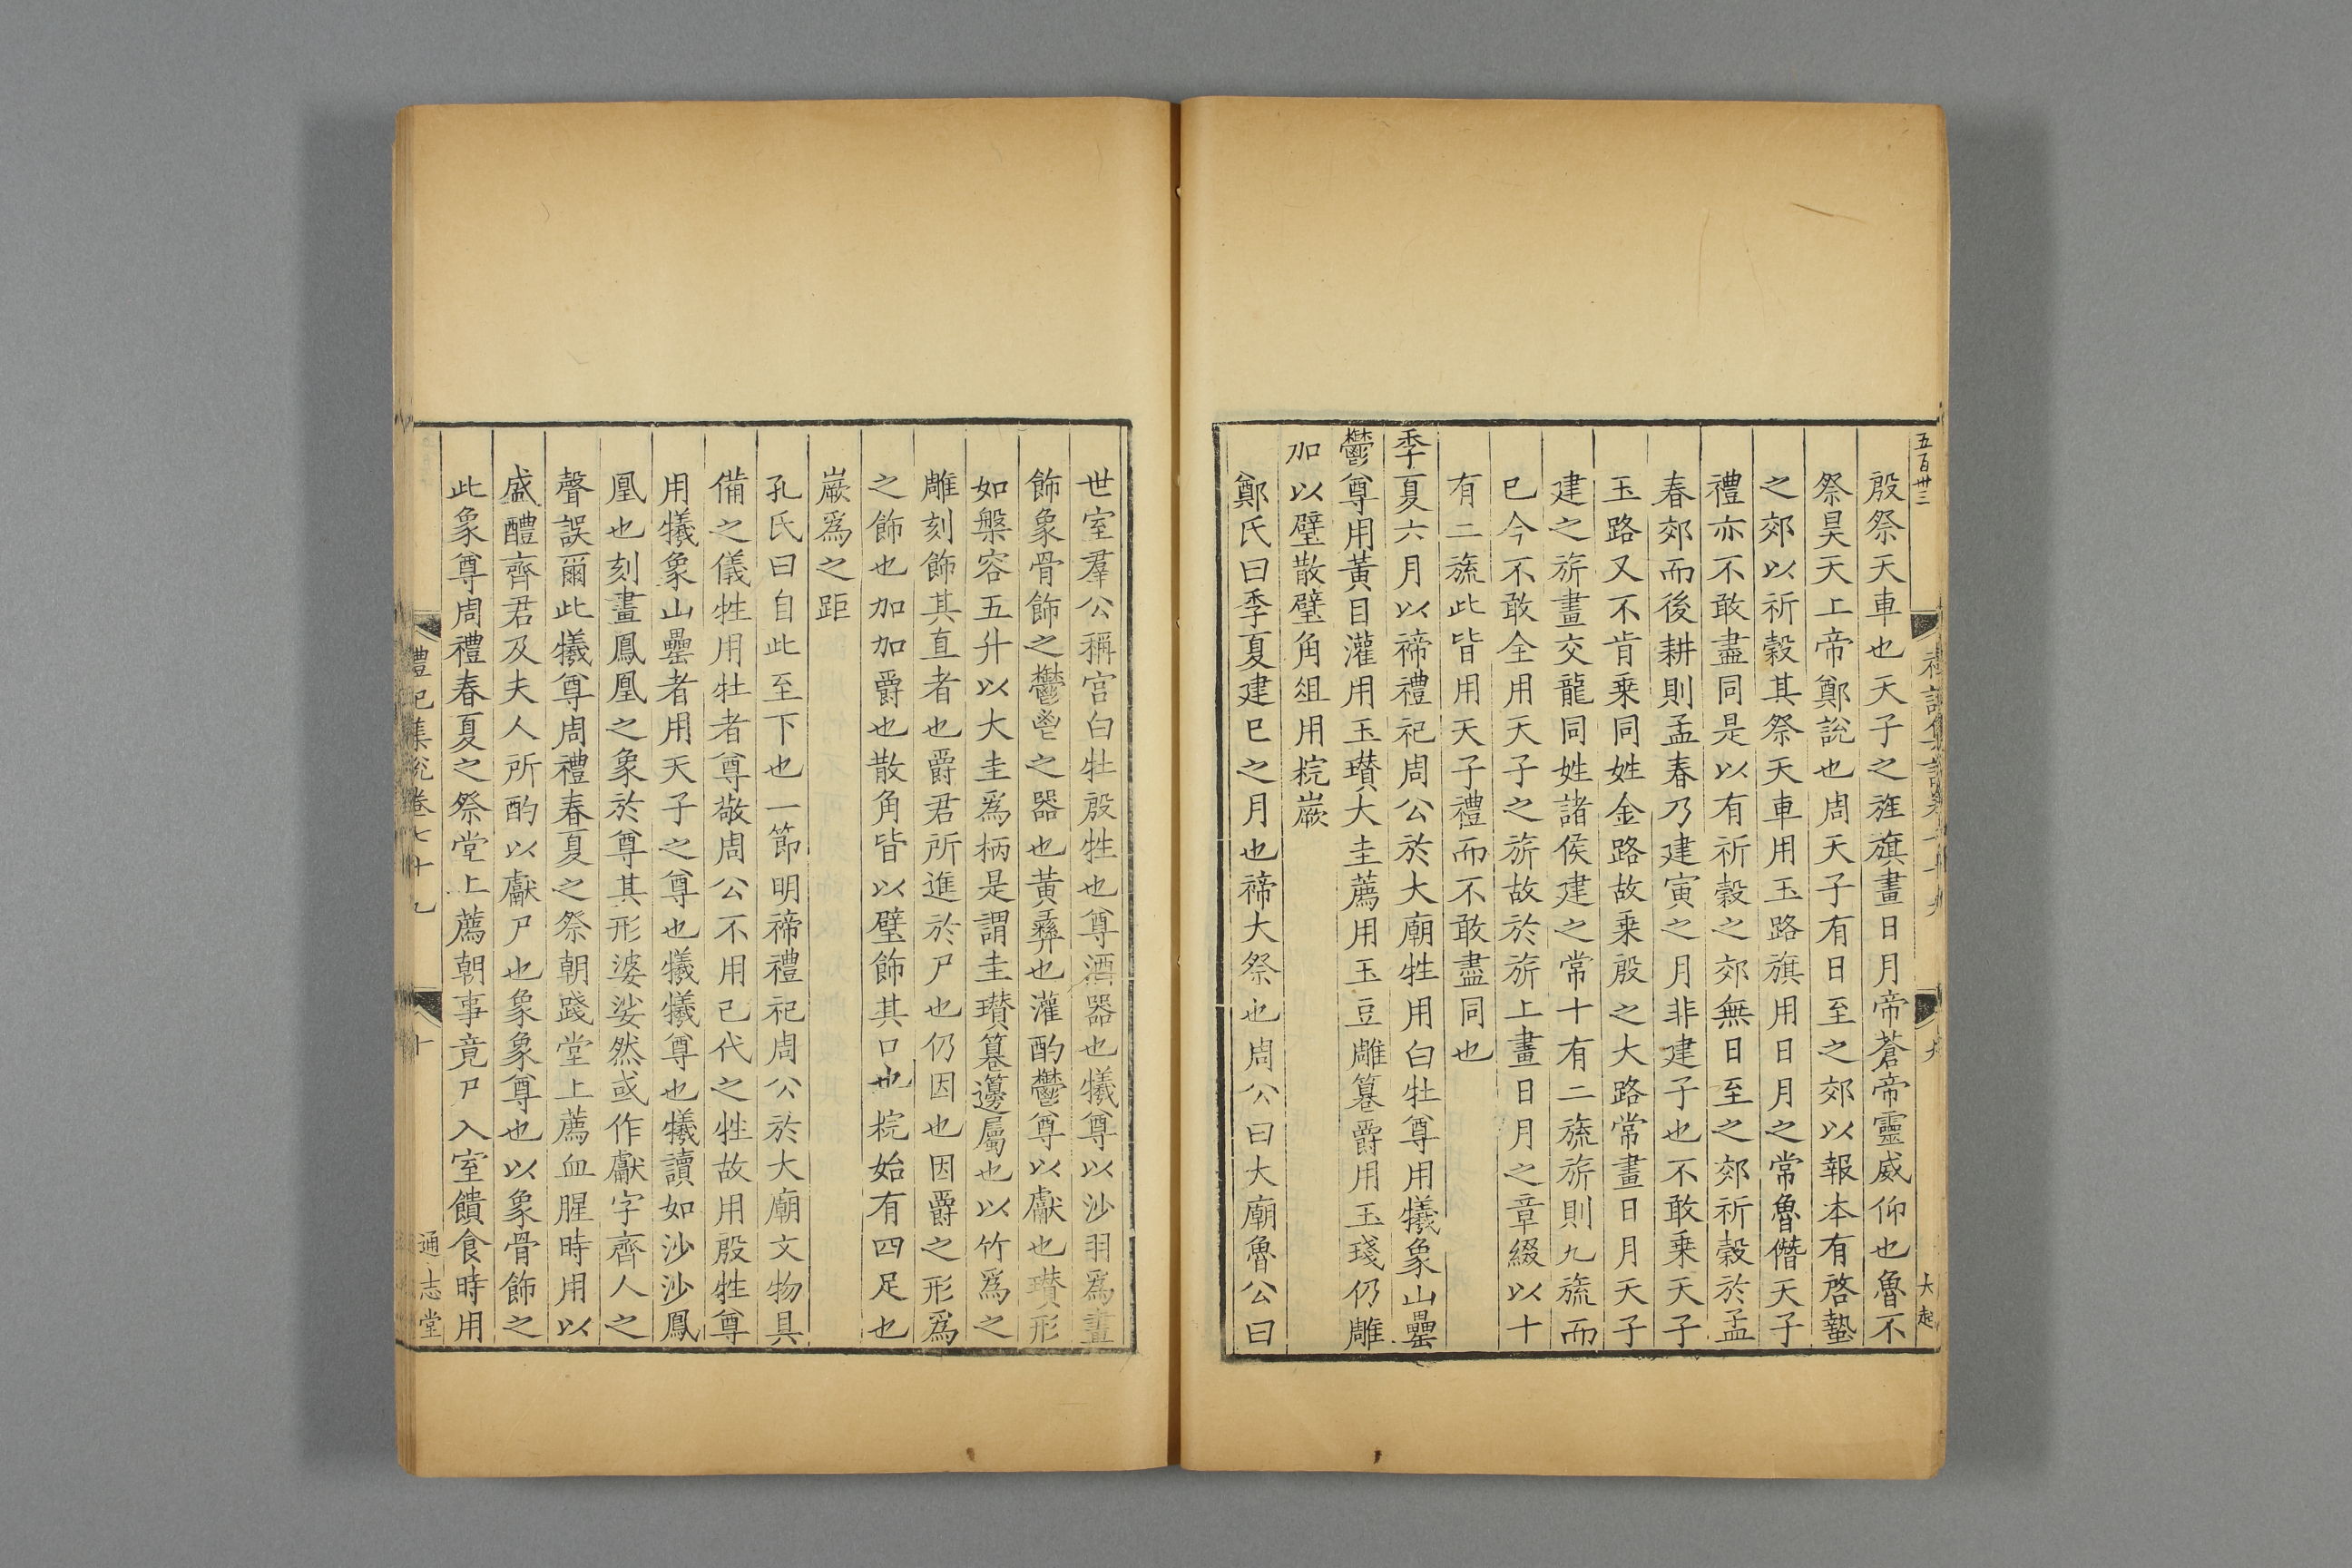 五百卅三
大起
殷祭天車也天子之旌旗畫日月帝蒼帝靈威仰也魯不
祭昊天上帝鄭說也周天子有日至之郊以報本有啓蟄
之郊以祈穀其祭天車用玉路旗用日月之常魯僭天子
禮亦不敢盡同是以有祈穀之郊無日至之郊祈穀於孟
春郊而後耕則孟春乃建寅之月非建子也不敢乗天子
玉路又不肯乗同姓金路故乗殷之大路常畫日月天子
建之旂畫交龍同姓諸侯建之常十有二旒旂則九旒而
已今不敢全用天子之旂故於旂上畫日月之章綴以十
有二旒此皆用天子禮而不敢盡同也
季夏六月以禘禮祀周公於大廟牲用白牡尊用犧象山罍
鬱尊用黃目灌用玉瓚大圭薦用玉豆雕篹爵用玉琖仍雕
加以璧散璧角俎用梡嶡
鄭氏曰季夏建巳之月也禘大祭也周公曰大廟魯公曰
世室羣公稱宫白牡殷牲也尊酒器也犧尊以沙羽爲畫
飾象骨飾之鬱鬯之器也黃彝也灌酌鬱尊以獻也瓚形
如槃容五升以大圭爲柄是謂圭瓚篹籩屬也以竹爲之
雕刻飾其直者也爵君所進於尸也仍因也因爵之形爲
之飾也加加爵也散角皆以璧飾其口也梡始有四足也
嶡爲之距
孔氏曰自此至下也一節明禘禮祀周公於大廟文物具
備之儀牲用牡者尊敬周公不用已代之牲故用殷牲尊
用犧象山罍者用天子之尊也犧犧尊也犧讀如沙沙鳳
凰也刻畫鳳凰之象於尊其形婆娑然或作獻字齊人之
聲誤爾此犧尊周禮春夏之祭朝踐堂上薦血腥時用以
盛醴齊君及夫人所酌以獻尸也象象尊也以象骨飾之
此象尊周禮春夏之祭堂上薦朝事竟尸入室饋食時用
禮記集說卷七十九
十
通志堂